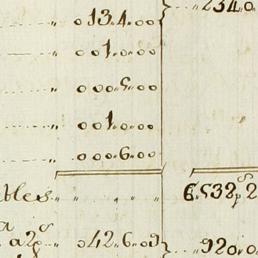 „ 013„4„00 „234„0
„ 001„0„00
„ 000„5„00
„ 001„0„00
„ 000„6„00
bles „ „ „ „ 6„532
„ 042„6„09 „920„0